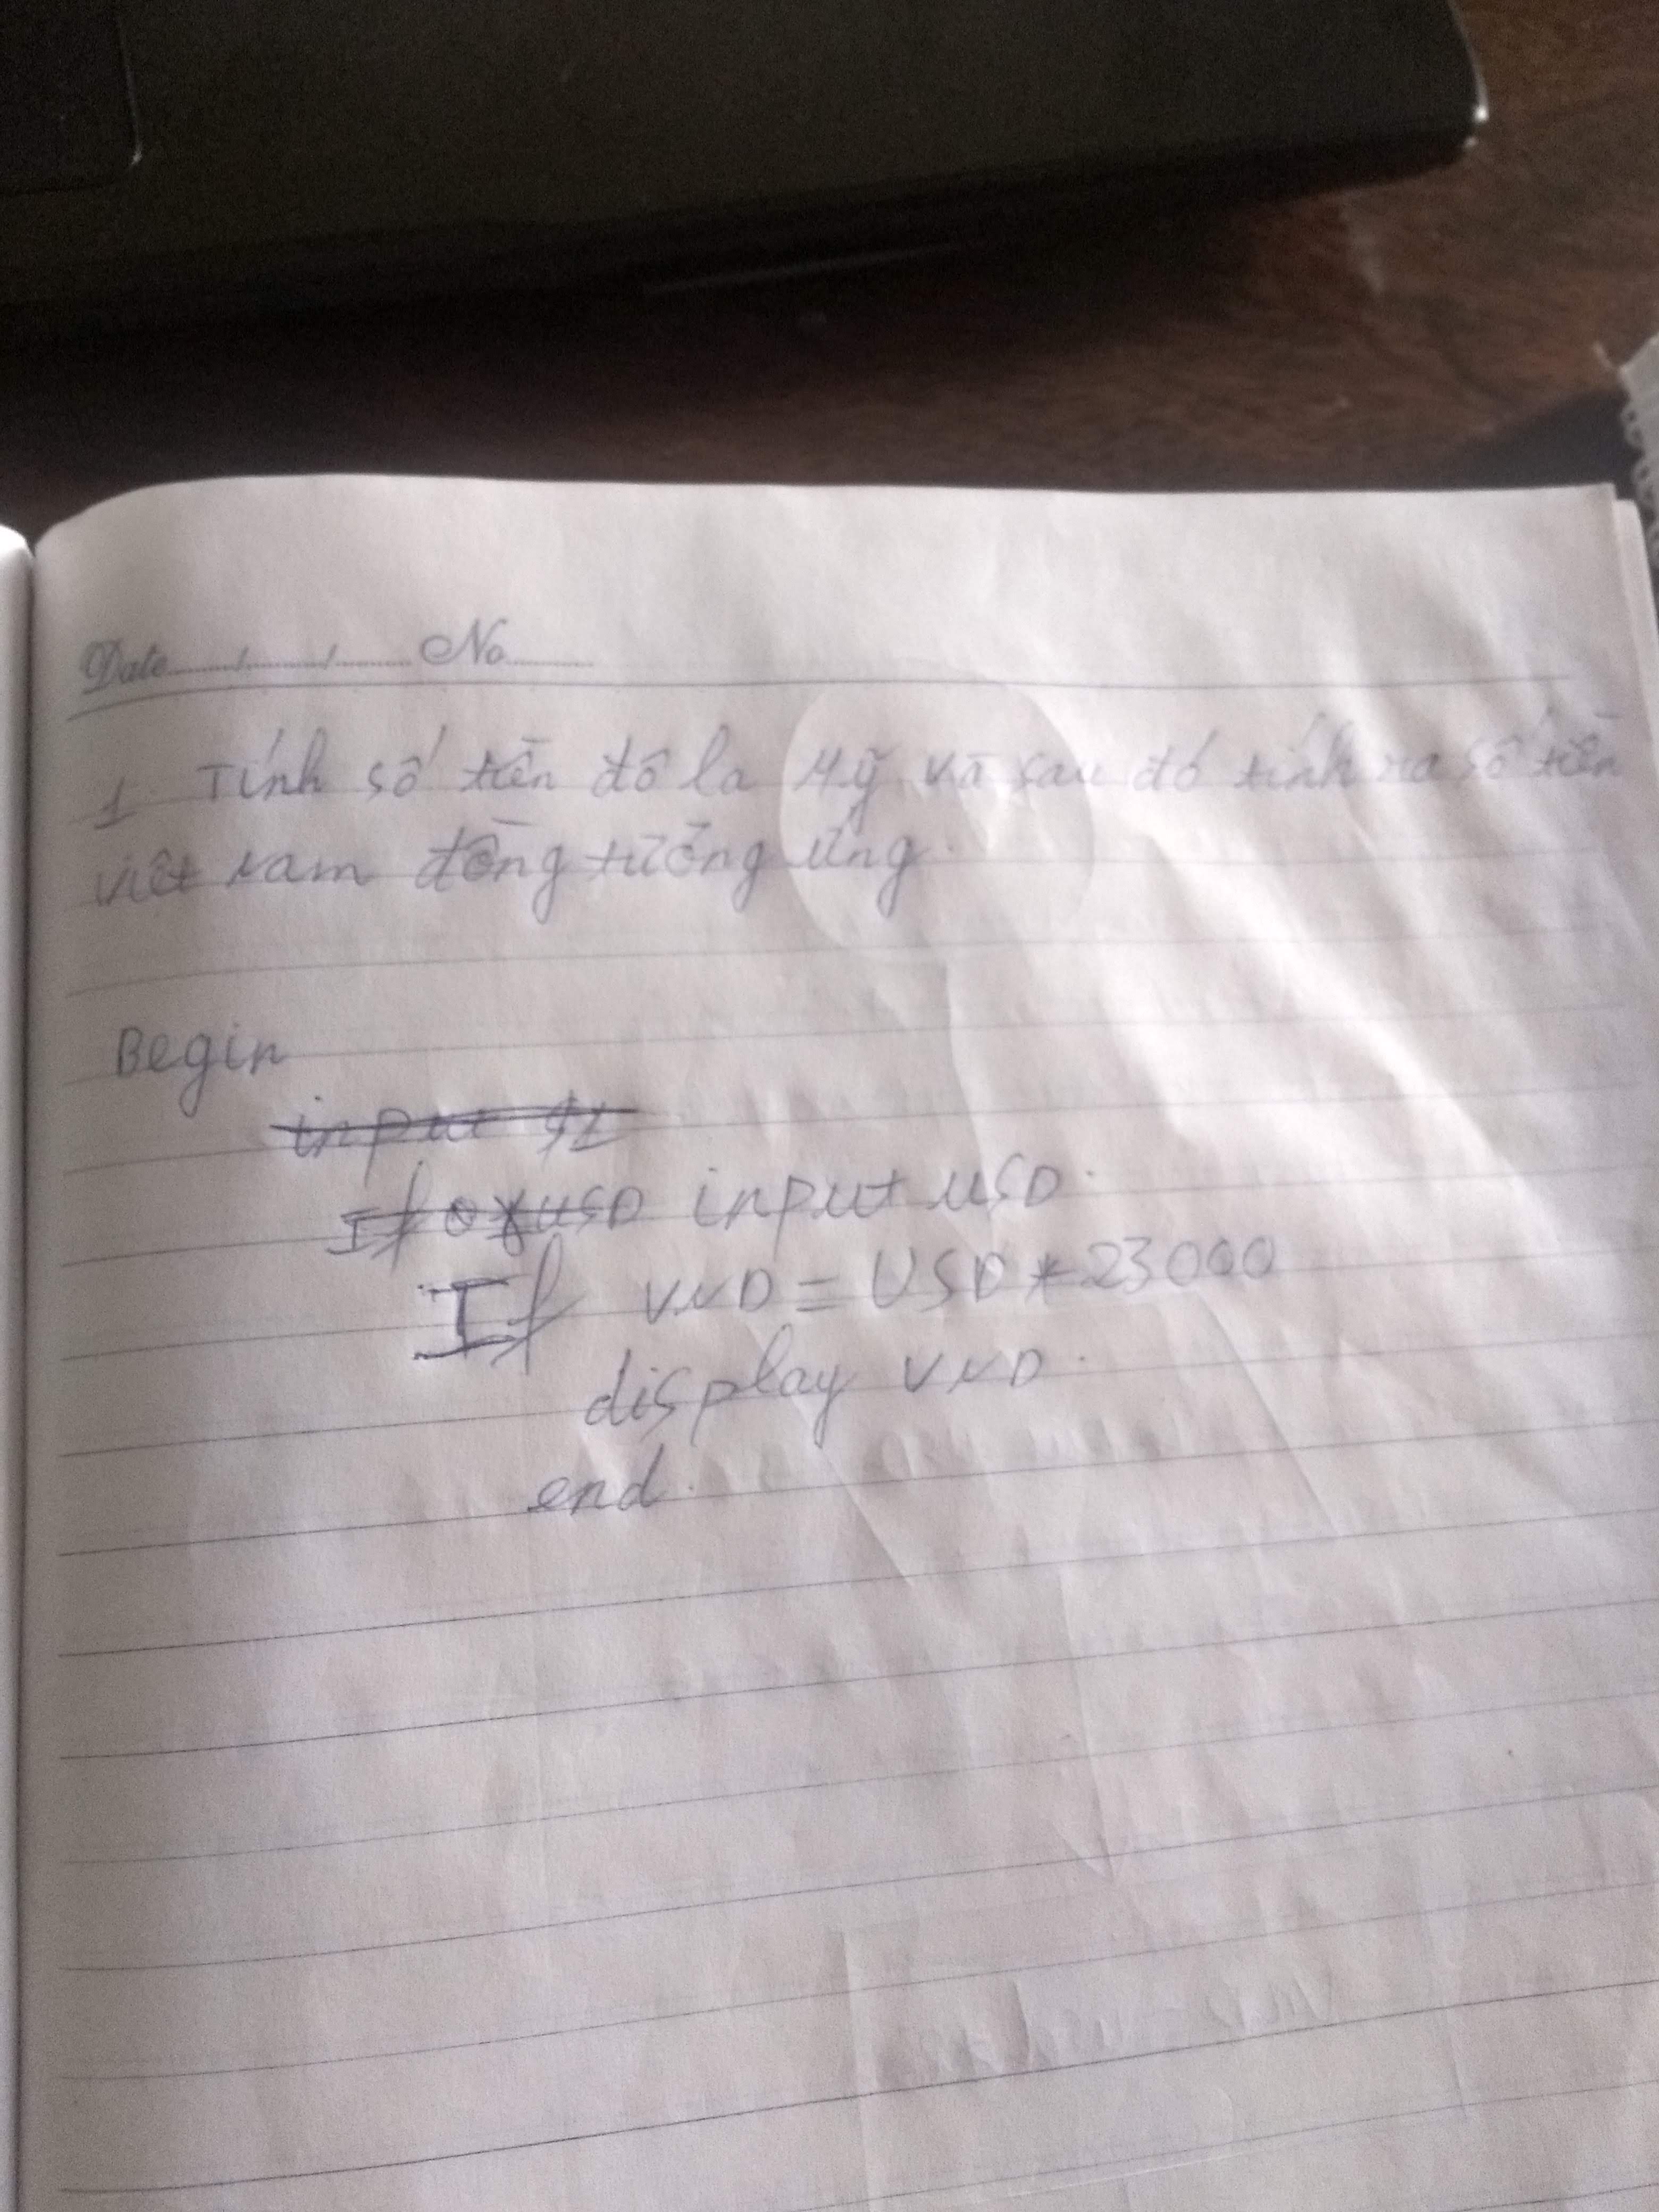 Date......./......./....... No.......
1. Tính số tiền đô la Mỹ và sau đó tính ra số tiền
việt nam đồng tương ứng.
Begin
input
USD input USD.
If VND = USD * 23000
display VND.
end.